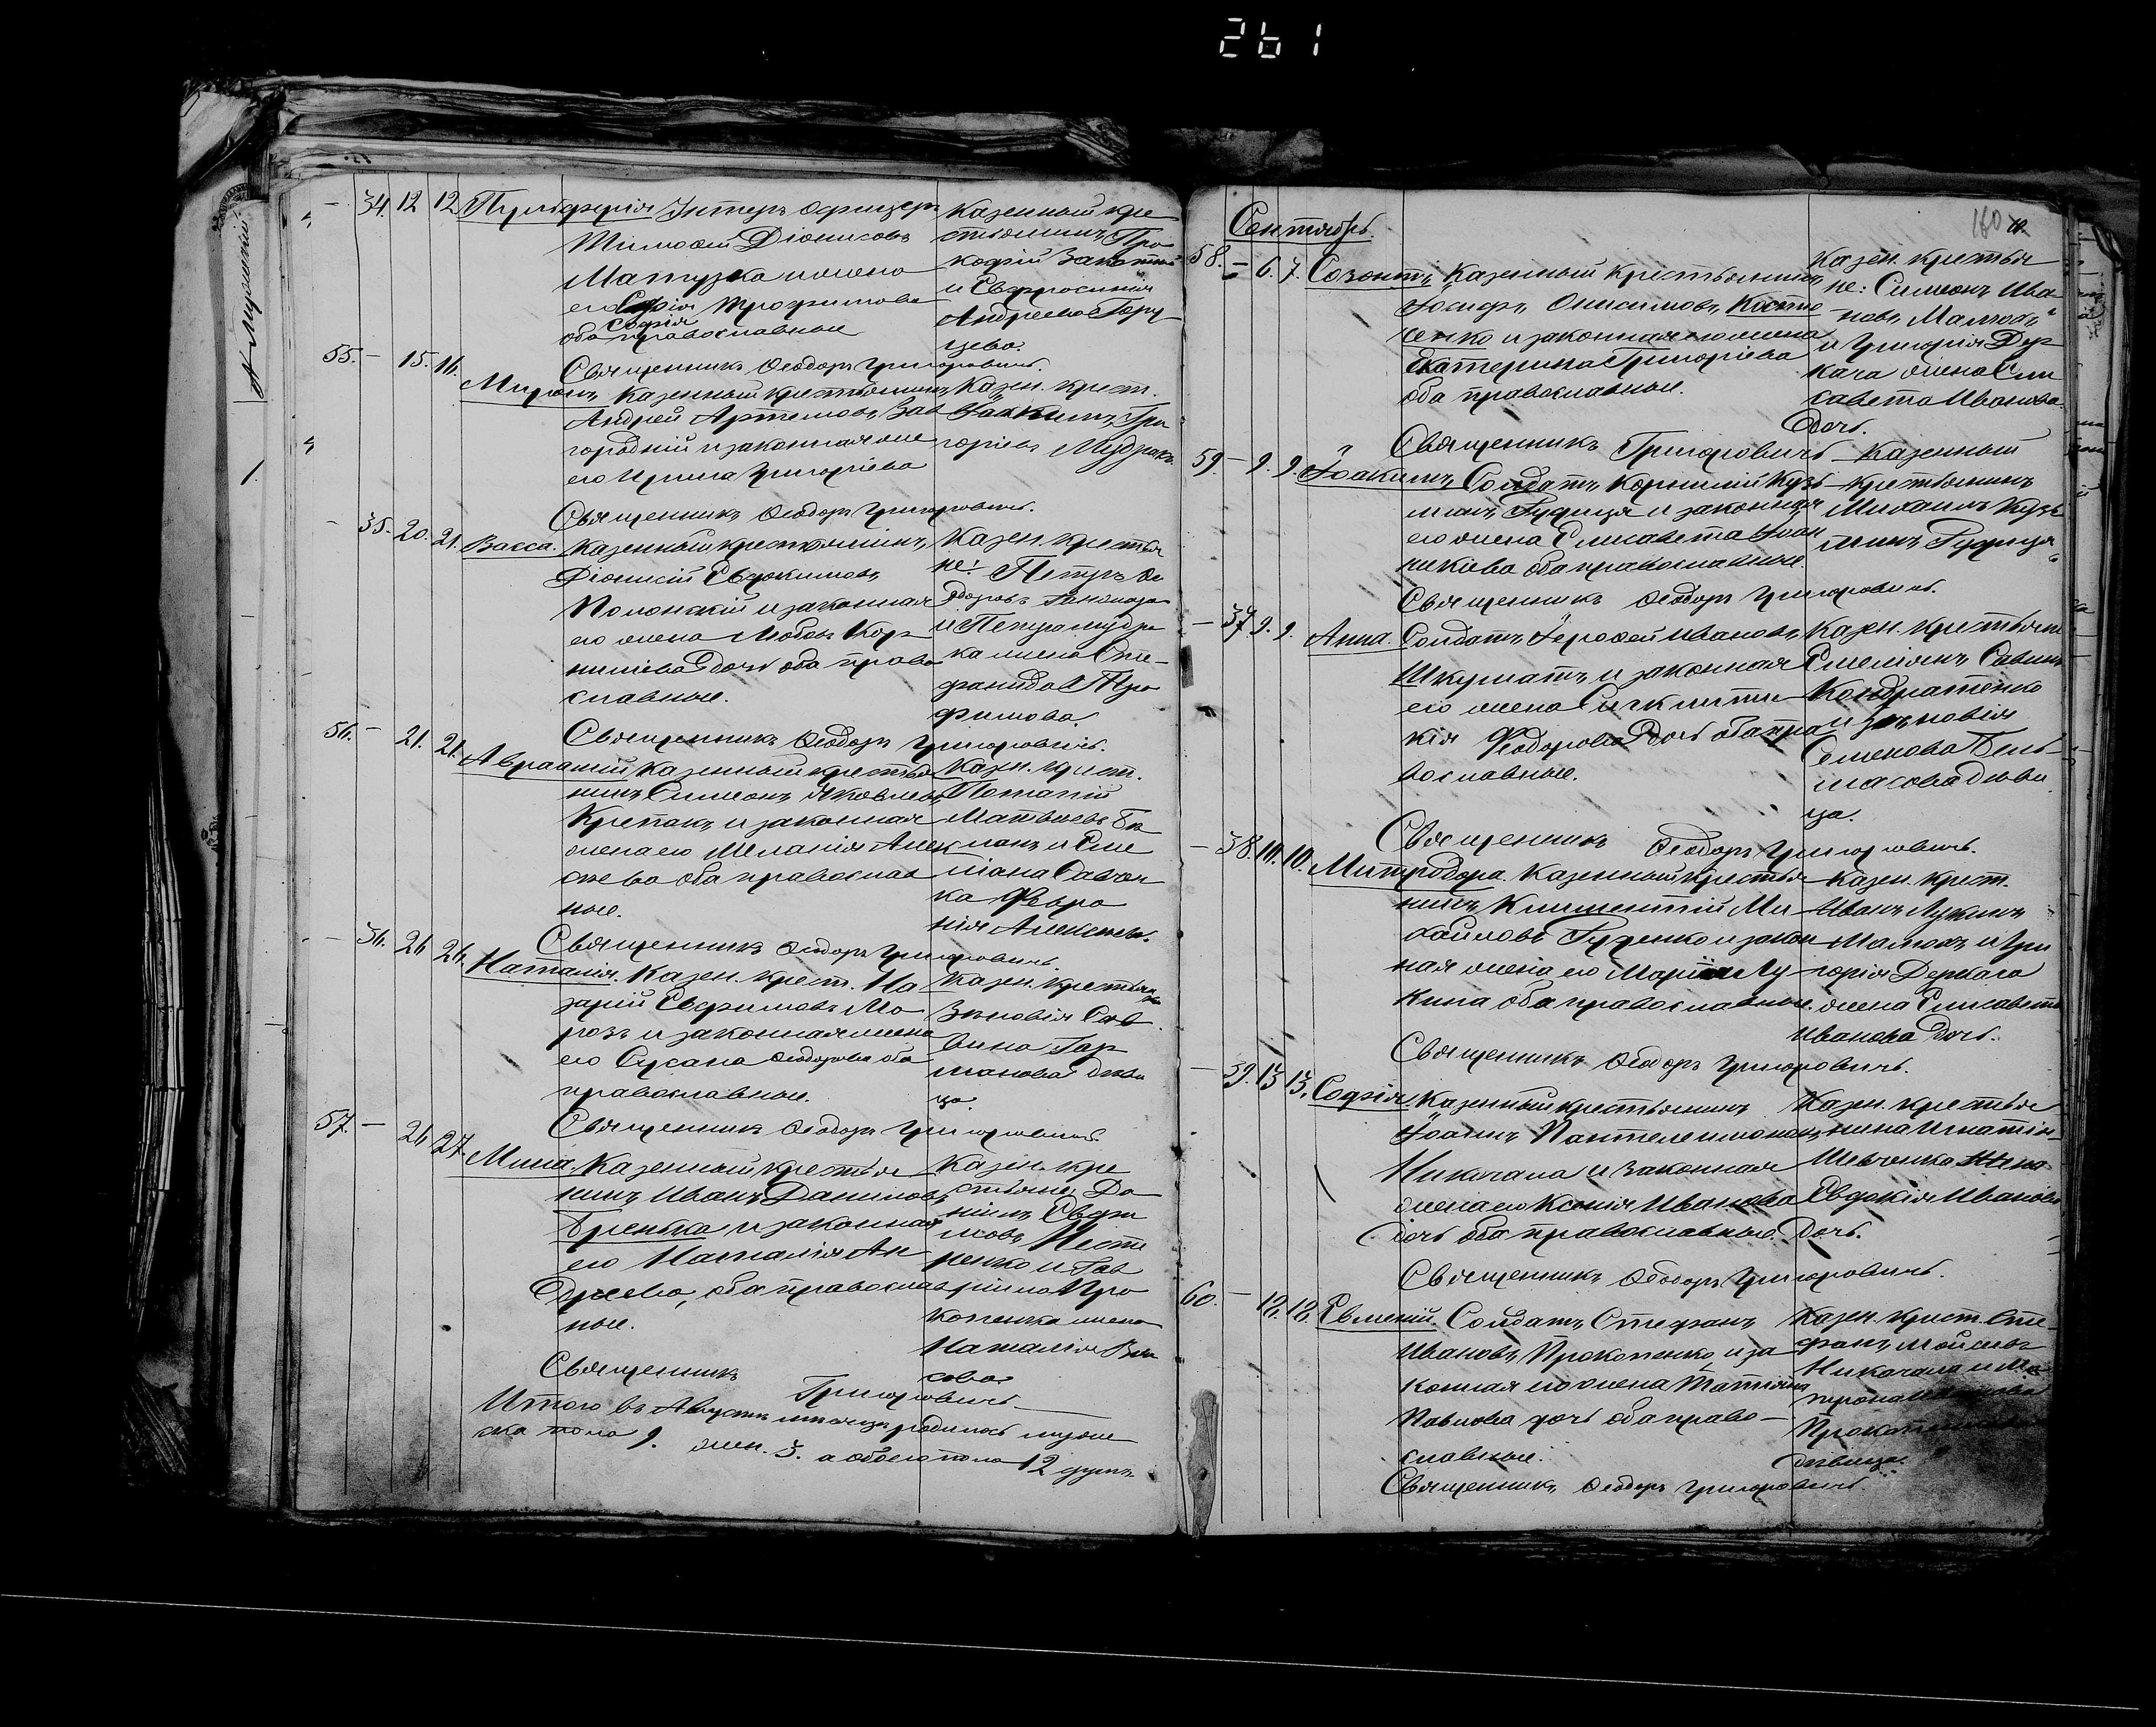 261
160
— 34. 12 12 Пульхерія Унтеръ офицеръ
Тимофей Діонисовъ
Матузка и жена
его Трофимова
Софія
оба православные
Казенный кре
стьянинъ Про
кофій
и Евфросинія
Андреева
Священникъ Ѳеодоръ Григоровичъ.
55. — 15. 16.
Миронъ Казенный крестьянинъ
Андрей Артемовъ Зав
городній и законная жена
его Ирина Григоріева
Казен. крест.
Іоакимъ Гри
горіевъ Мудракъ
Священникъ Ѳеодоръ Григоровичъ.
— 35. 20. 21. Васса. Казенный крестьянинъ
Діонисій Евдокимовъ
Полонскій и законная
его жена Любовь Кор
ниліева дочь оба право
славные.
Казен. крестья
не: Петръ Ѳе
доровъ
и Петра Мудра
ка жена Сте-
фанида Тро
фимова.
Священникъ Ѳеодоръ Григоровичъ.
56. — 21. 21.
Авраамій Казенный крестья
нинъ Симеонъ Яковлевъ
Крепакъ и законная
жена его Меланія Алек
сѣева оба православ
ные.
Казен. крест.
Потапій
Матвѣевъ
ка Февро
нія Алексѣева.
Священникъ Ѳеодоръ Григоровичъ.
— 36. 26 26. Наталія. Казен. крест. На
зарій Евфимовъ Мо
розъ и законная жена
его Сусана Ѳеодорова оба
православные.
Казен. крестьян
Зиновія Сав
вина
дѣви
ца.
Священникъ Ѳеодоръ Григоровичъ
57. — 26 27.
Мина. Казенный крестья
нинъ Иванъ Даниловъ
Гренька и законная
его Наталія Ан
дреева, оба православ
ные.
Казен. кре
стьяне: Да
ніилъ Евфи
мовъ Несте
ренко и Гав
ріила Про
копенка жена
Наталія Вла
сова
Священникъ Григоровичъ.
Итого въ Августѣ мѣсяцѣ родилось муже
ска пола 9. жен. 3. а обоего пола 12 душъ
Сентябрь.
58. — 6. 7. Созонтъ. Казенный крестьянинъ
Іосифъ Онисимовъ Косте
ченко и законная его жена
Екатерина Григоріева
оба православные.
Казен. крестья
не: Симеонъ Ива
новъ Малюкъ
и Григорія Дер
кача жена Ели
савета Иванова
дочь.
Священникъ Григоровичъ
59. — 9. 9. Іоакимъ. Солдатъ Корнилій Кузь
минъ Гудзця и законная
его жена Елисавета Іоан
никіева оба православные.
Казенный
крестьянинъ
Михаилъ Кузь
минъ Гудзця
Священникъ Ѳеодоръ Григоровичъ.
— 37 9. 9. Анна. Солдатъ Іерофей Ивановъ
Шкуматъ и законная
его жена Сигклити
кія Ѳеодорова дочь оба пра
вославные.
Казен. крестьяне
Емеліанъ Савинъ
Кондратенко
и Зиновія
Семенова Бель
масова дѣви
ца.
Священникъ Ѳеодоръ Григоровичъ.
— 38. 10. 10. Митродора. Казенный крестья
нинъ Климентій Ми
хайловъ Гуденко и закон
ная жена его Марія Лу
кина оба православные.
Казен. крест.
Иванъ Лукинъ
Малюкъ и Гри
горія Деркача
жена Елисавета
Иванова дочь.
Священникъ Ѳеодоръ Григоровичъ.
— 39. 13 13. Софія. Казенный крестьянинъ
Іоаннъ Пантелеимоновъ
Никочала и законная
жена его Ксенія Иванова
дочь оба православные.
Казен. крестья
нина Игнатія
Шевченка жена
Евдокія Иванова
дочь.
Священникъ Ѳеодоръ Григоровичъ.
60. — 18. 18. Евменій. Солдатъ Стефанъ
Ивановъ Прокопенко и за
конная его жена Татіана
Павлова дочь оба право-
славные.
Казен. крест. Сте
фанъ Мойсеевъ
Никочала и Ма
трона
дѣвица.
Священникъ Ѳеодоръ Григоровичъ.